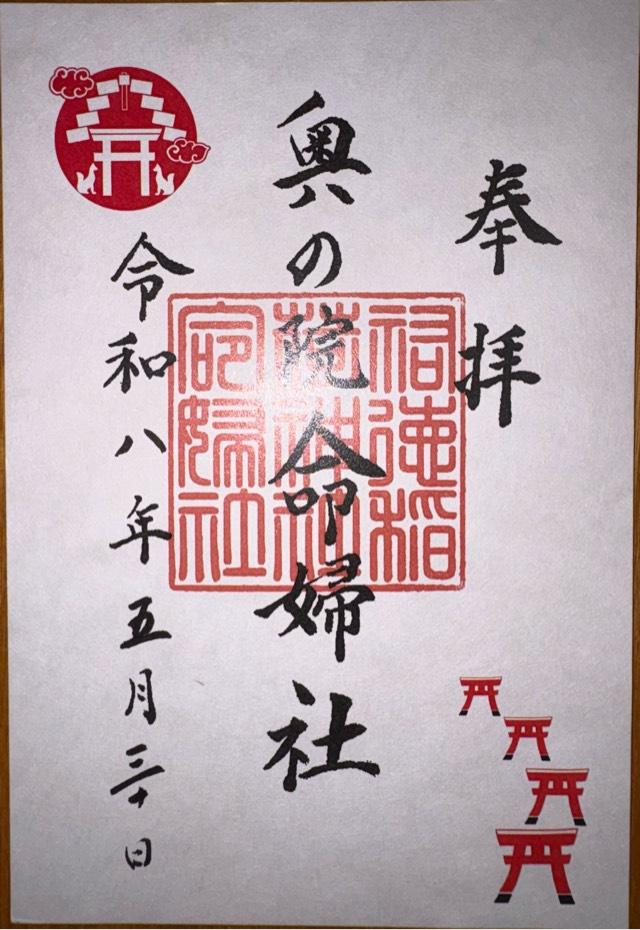 奉拝
奥の院命婦社
令和八年五月三十日
祐徳稲
荷神社
命婦社